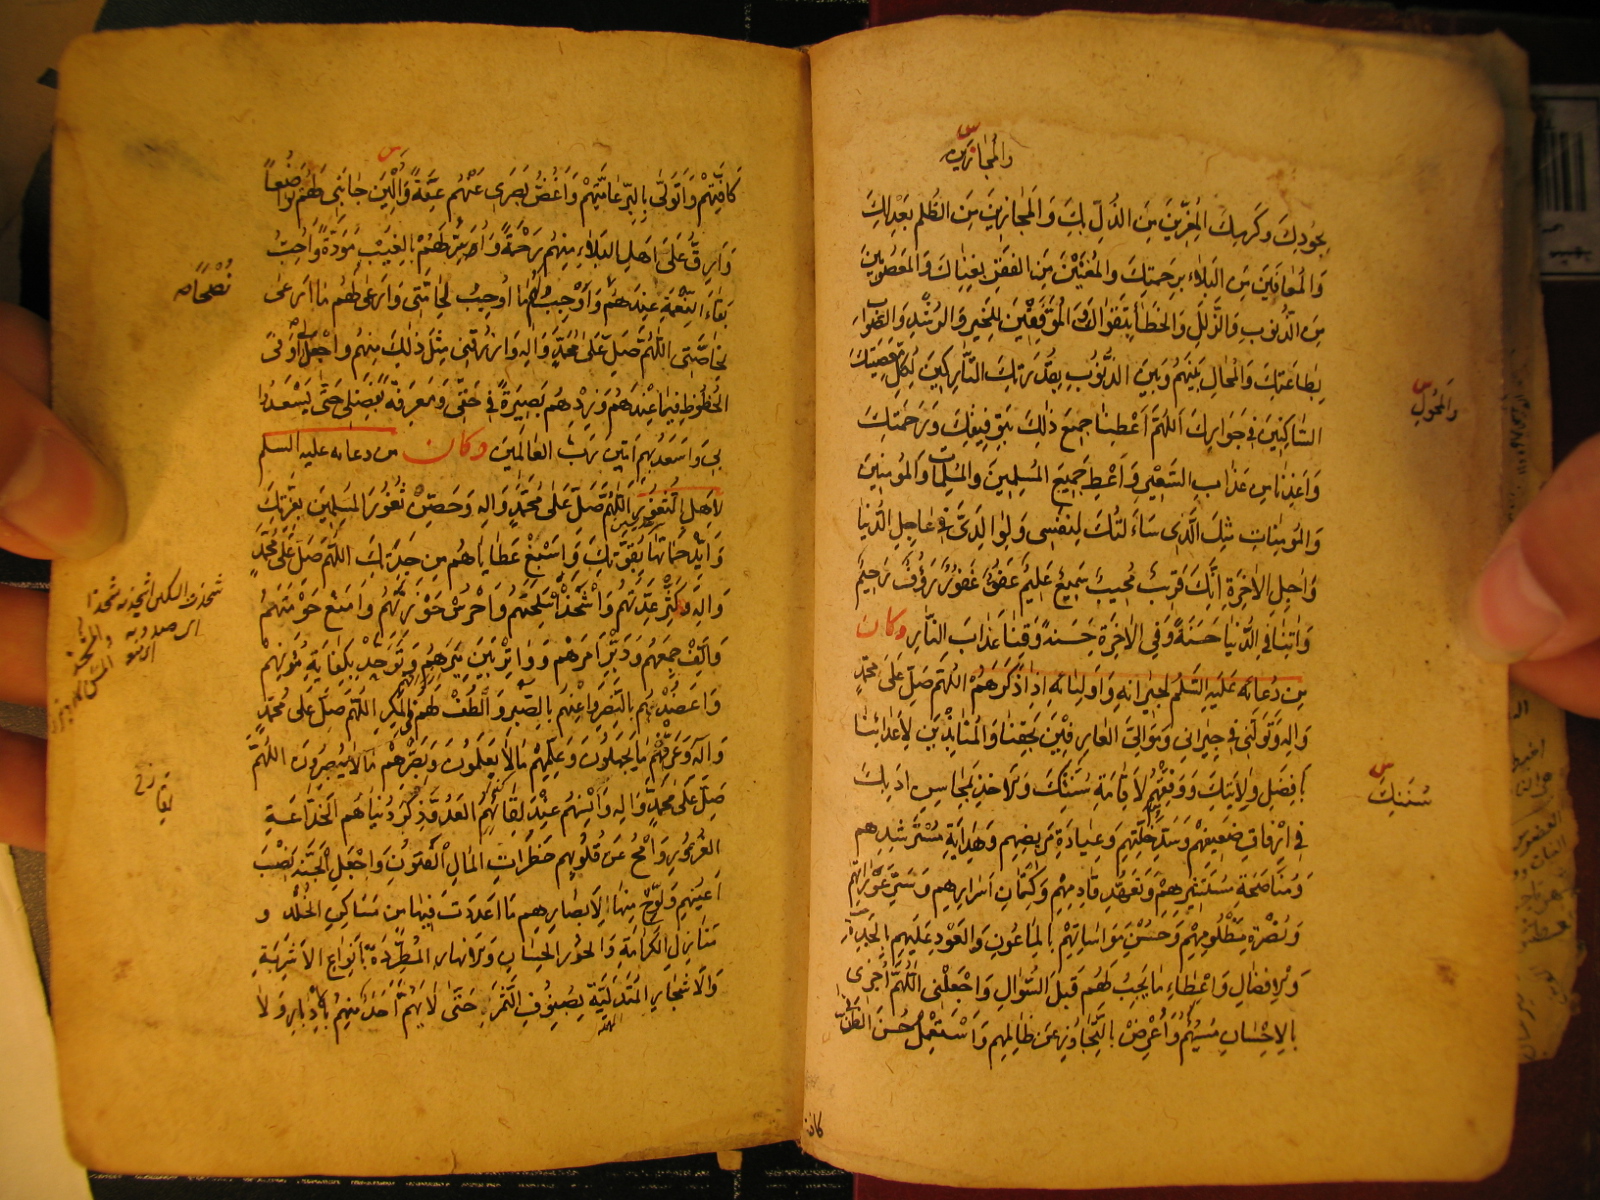 والمجازين
س
بجودك وكرمك المعزين من الذل بك والمجازين من الظلم بعدلك
والمعافين من البلاء برحمتك والمغنين من الفقر بغناك والمعصومين
من الذنوب والزلل والخطأ بتقواك والموفقين للخير والرشد والصواب
بطاعتك والمحال بينهم وبين الذنوب بقدرتك التاركين لكل معصيتك
والمحول
س
الساكنين في جوارك اللهم اعطنا جميع ذلك بتوفيقك ورحمتك
واعذنا من عذاب السعير واعط جميع المسلمين والمسلمات والمؤمنين
والمؤمنات مثل الذي سألتك لنفسي ولوالدي في عاجل الدنيا
واجل الاخرة انك قريب مجيب سميع عليم عفو غفور رؤف رحيم
واتنا في الدنيا حسنة وفي الاخرة حسنة وقنا عذاب النار وكان
من دعائه عليه السلم لجيرانه واوليائه اذا ذكرهم اللهم صل على محمد
واله وتولني في جيراني وموالي العارفين بحقنا والمنابذين لأعدائنا
بأفضل ولايتك ووفقهم لاقامة سنتك والاخذ بمحاسن ادبك
سننك
س
في ارفاق ضعيفهم وسد خلتهم وعيادة مريضهم وهداية مسترشدهم
ومناصحة مستشيرهم وتعهد قادمهم وكتمان اسرارهم وستر عوراتهم
ونصرة مظلومهم وحسن مواساتهم بالماعون والعود عليهم بالجدة
والافضال واعطاء ما يجب لهم قبل السؤال واجعلني اللهم اجزي
بالاحسان مسيئهم واعرض بالتجاوز عن ظالمهم واستعمل حسن الظن
كافتهم واتولى بالبر عامتهم واغض بصري عنهم عفة والين جانبي لهم تواضعا
س
وارق على اهل البلاء منهم رحمة واسر لهم بالغيب مودة واحب
نصحا
بقاء النعمة عندهم واوجب لهم ما اوجب لحامتي وارعى لهم ما ارعى
لخاصتي اللهم صل على محمد واله وارزقني مثل ذلك منهم واجعل لي اوفى
الحظوظ فيما عندهم وزدهم بصيرة في حقي ومعرفة بفضلي حتى يسعدوا
بي واسعد بهم امين رب العالمين وكان من دعائه عليه السلم
لاهل الثغور اللهم صل على محمد واله وحصن ثغور المسلمين بعزتك
وايد حماتها بقوتك واسبغ عطاياهم من جدتك اللهم صل على محمد
واله وكثر عدتهم واشحذ اسلحتهم واحرس حوزتهم وامنع حومتهم
والف جمعهم ودبر امرهم وواتر بين ميرهم وتوحد بكفاية مؤنهم
واعضدهم بالنصر واعنهم بالصبر والطف لهم في المكر اللهم صل على محمد
واله وعرفهم ما يجهلون وعلمهم ما لا يعلمون وبصرهم ما لا يبصرون اللهم
صل على محمد واله وانسهم عند لقائهم العدو ذكر دنياهم الخداعة
الغرور وامح عن قلوبهم خطرات المال الفتون واجعل الجنة نصب
اعينهم ولوح منها لابصارهم ما اعددت فيها من مساكن الخلد و
منازل الكرامة والحور الحسان والانهار المطردة بأنواع الاشربة
والاشجار المتدلية بصنوف الثمر حتى لا يهم احد منهم بالادبار ولا